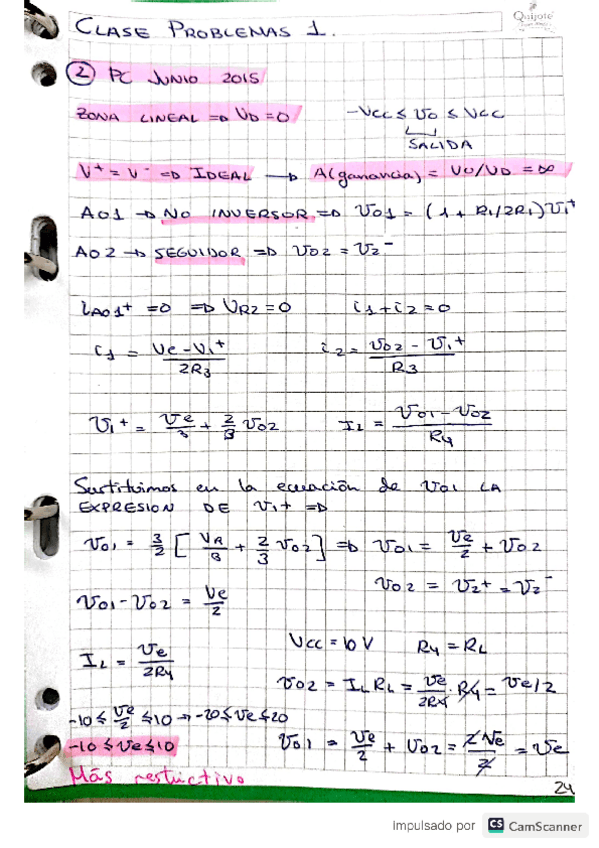 CLASE PROBLEMAS 1.
Quijote
② PC JUNIO 2015
ZONA LINEAL => VD=0 -VCC ≤ VO ≤ VCC
SALIDA
V⁺ = V⁻ => IDEAL → A(ganancia) = VO/VD = ∞
AO1 → NO INVERSOR => VO1 = (1 + R1/2R1)V1⁺
AO2 → SEGUIDOR => VO2 = V2⁻
iAO1⁺ = 0 => VR2 = 0 i1 + i2 = 0
i1 = (Ve - V1⁺)/2R3 i2 = (VO2 - V1⁺)/R3
V1⁺ = Ve/3 + 2/3 VO2 IL = (VO1 - VO2)/R4
Sustituimos en la ecuación de VO1 LA
EXPRESION DE V1⁺ =>
VO1 = 3/2 [VR/3 + 2/3 VO2] => VO1 = Ve/2 + VO2
VO2 = V2⁺ = V2⁻
VO1 - VO2 = Ve/2
VCC = 10 V R4 = RL
IL = Ve/2R4
VO2 = IL RL = Ve/2R4 · R4 = Ve/2
-10 ≤ Ve/2 ≤ 10 → -20 ≤ Ve ≤ 20
VO1 = Ve/2 + VO2 = 2Ve/2 = Ve
-10 ≤ Ve ≤ 10
Más restrictivo
24
Impulsado por CS CamScanner